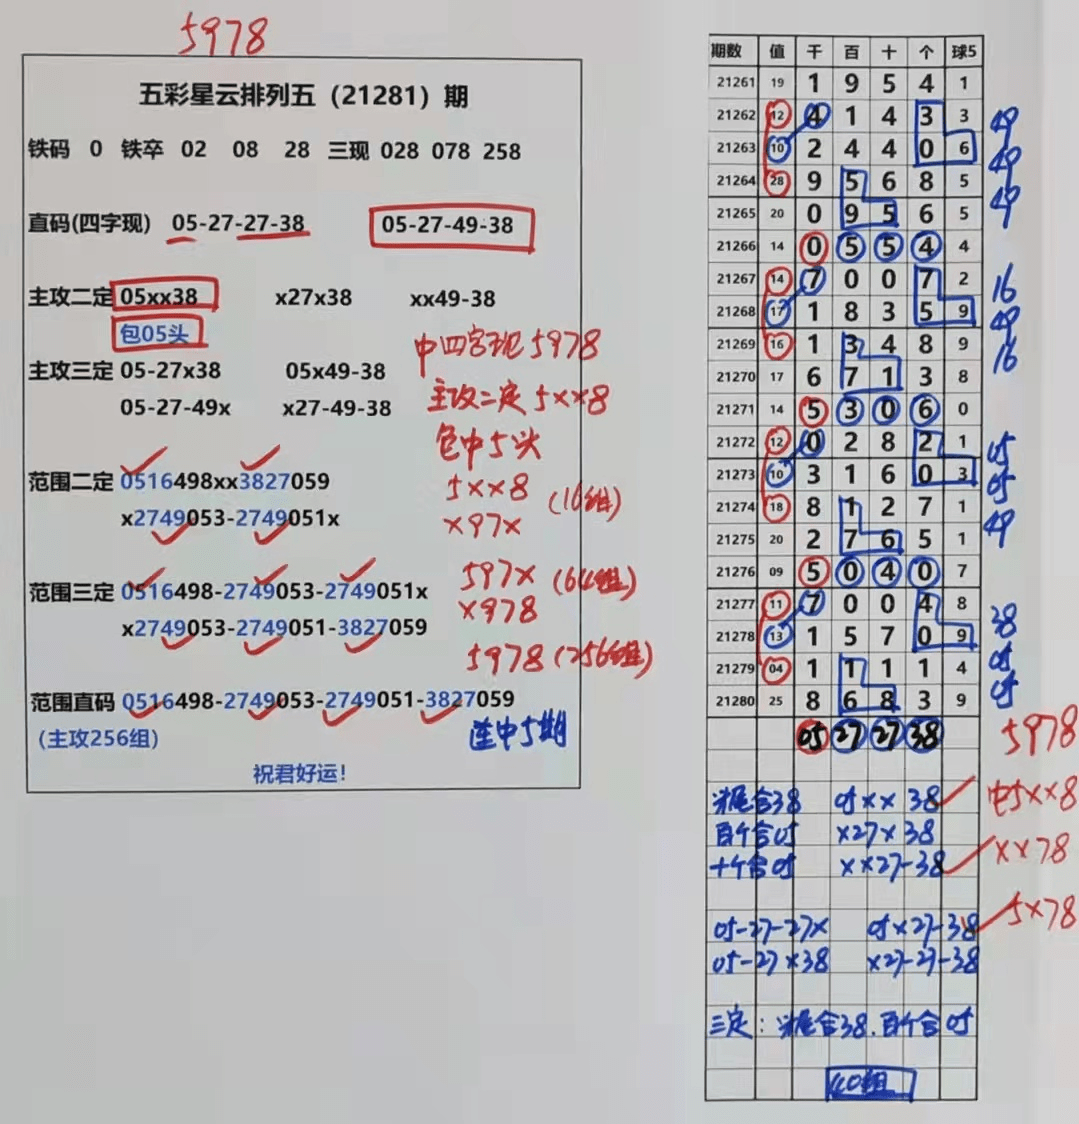 5978
五彩星云排列五（21281）期
铁码 0 铁卒 02 08 28 三现 028 078 258
直码(四字现) 05-27-27-38 05-27-49-38
主攻二定 05xx38 x27x38 xx49-38
包05头
主攻三定 05-27x38 05x49-38
05-27-49x x27-49-38
中四字现5978
主攻二定5××8
包中5头
范围二定 0516498xx3827059
x2749053-2749051x
5××8 (16组)
×97×
范围三定 0516498-2749053-2749051x
x2749053-2749051-3827059
597× (64组)
×978
5978 (256组)
范围直码 0516498-2749053-2749051-3827059
(主攻256组)
连中5期
祝君好运！
期数 值 千 百 十 个 球5
21261 19 1 9 5 4 1
21262 12 4 1 4 3 3 49
21263 10 2 4 4 0 6 49
21264 28 9 5 6 8 5 49
21265 20 0 9 5 6 5
21266 14 0 5 5 4 4
21267 14 7 0 0 7 2 16
21268 17 1 8 3 5 9 49
21269 16 1 3 4 8 9 16
21270 17 6 7 1 3 8
21271 14 5 3 0 6 0
21272 12 0 2 8 2 1 05
21273 10 3 1 6 0 3 05
21274 18 8 1 2 7 1 49
21275 20 2 7 6 5 1
21276 09 5 0 4 0 7
21277 11 7 0 0 4 8 38
21278 13 1 5 7 0 9
21279 04 1 1 1 1 4 05
21280 25 8 6 8 3 9 05
05 27 27 38 5978
尾合38 05×× 38 中5××8
百个合05 ×27×38
十个合05 ××27-38 ××78
05-27-27× 05×27-38 5×78
05-27×38 ×27-27-38
三定：尾合38.百个合05
40组